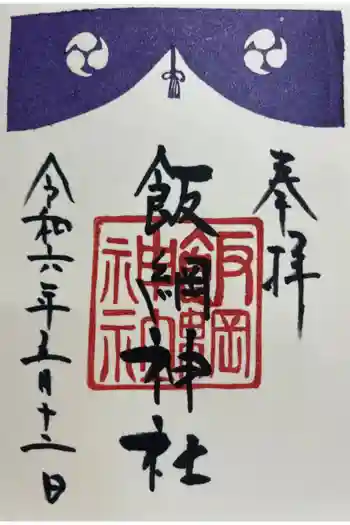 奉拝
飯綱神社
飯綱神社
令和六年五月十二日